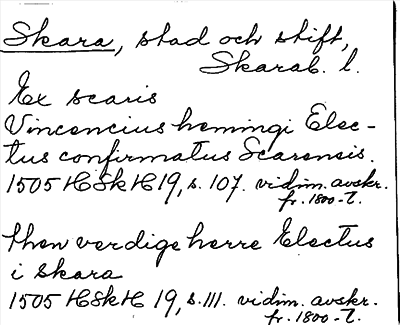 Skara, stad och stift,
Skarab. l.
Ex scaris
Vincencius hemingi Elec-
tus confirmatus Scarensis.
1505 HSkH 19, s. 107. vidim. avskr.
fr. 1800-t.
then verdige herre Electus
i skara
1505 HSkH 19, s. 111. vidim. avskr.
fr. 1800-t.